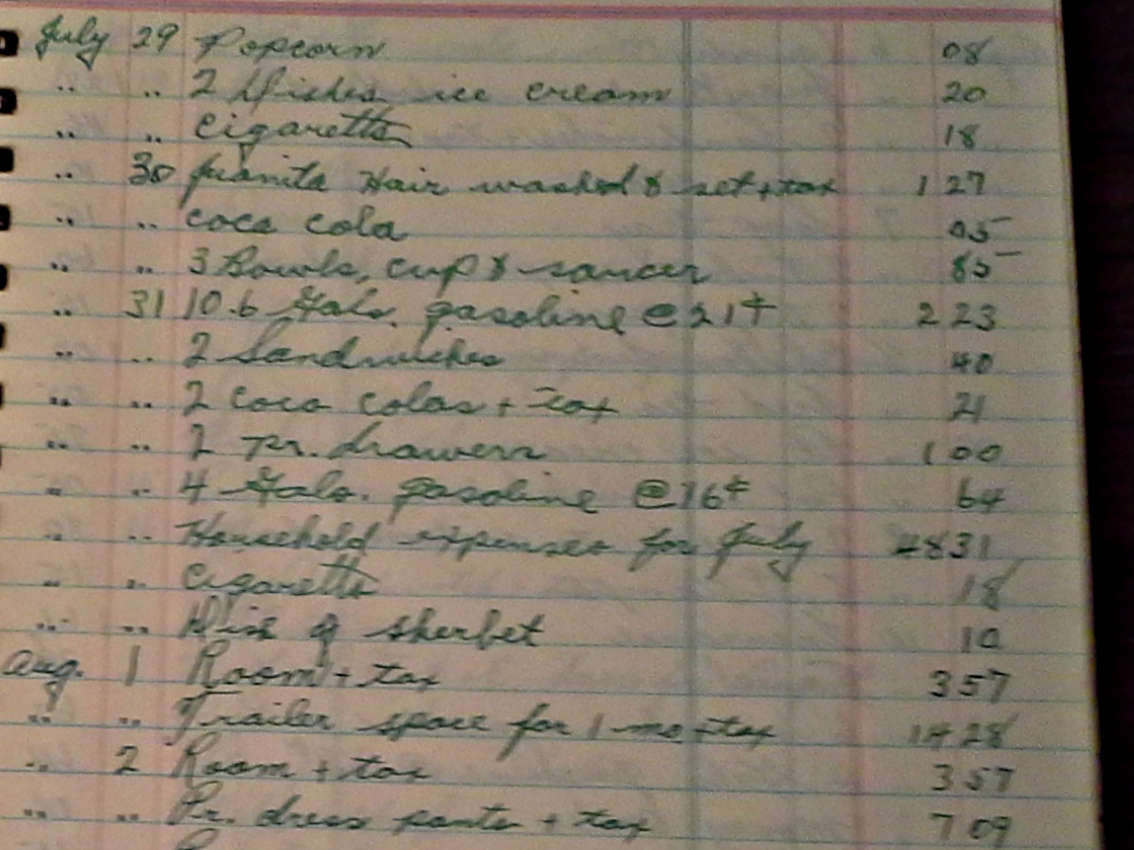 July 29 Popcorn 08
" " 2 Dishes ice cream 20
" " Cigaretts 18
" 30 Juanita Hair washed & set + tax 1 27
" " Coca cola 05
" " 3 Bowls, cup & saucer 85
" 31 10.6 Gals. gasoline @ 21¢ 2 23
" " 2 Sandwiches 40
" " 2 Coco colas + Tax 21
" " 2 Pr. drawers 1 00
" " 4 Gals. gasoline @ 16¢ 64
" " Household expenses for July 48 31
" " Cigaretts 18
" " Dish of sherbet 10
Aug. 1 Room + tax 3 57
" " Trailer space for 1 mo + tax 14 28
" 2 Room + tax 3 57
" " Pr. dress pants + tax 7 09